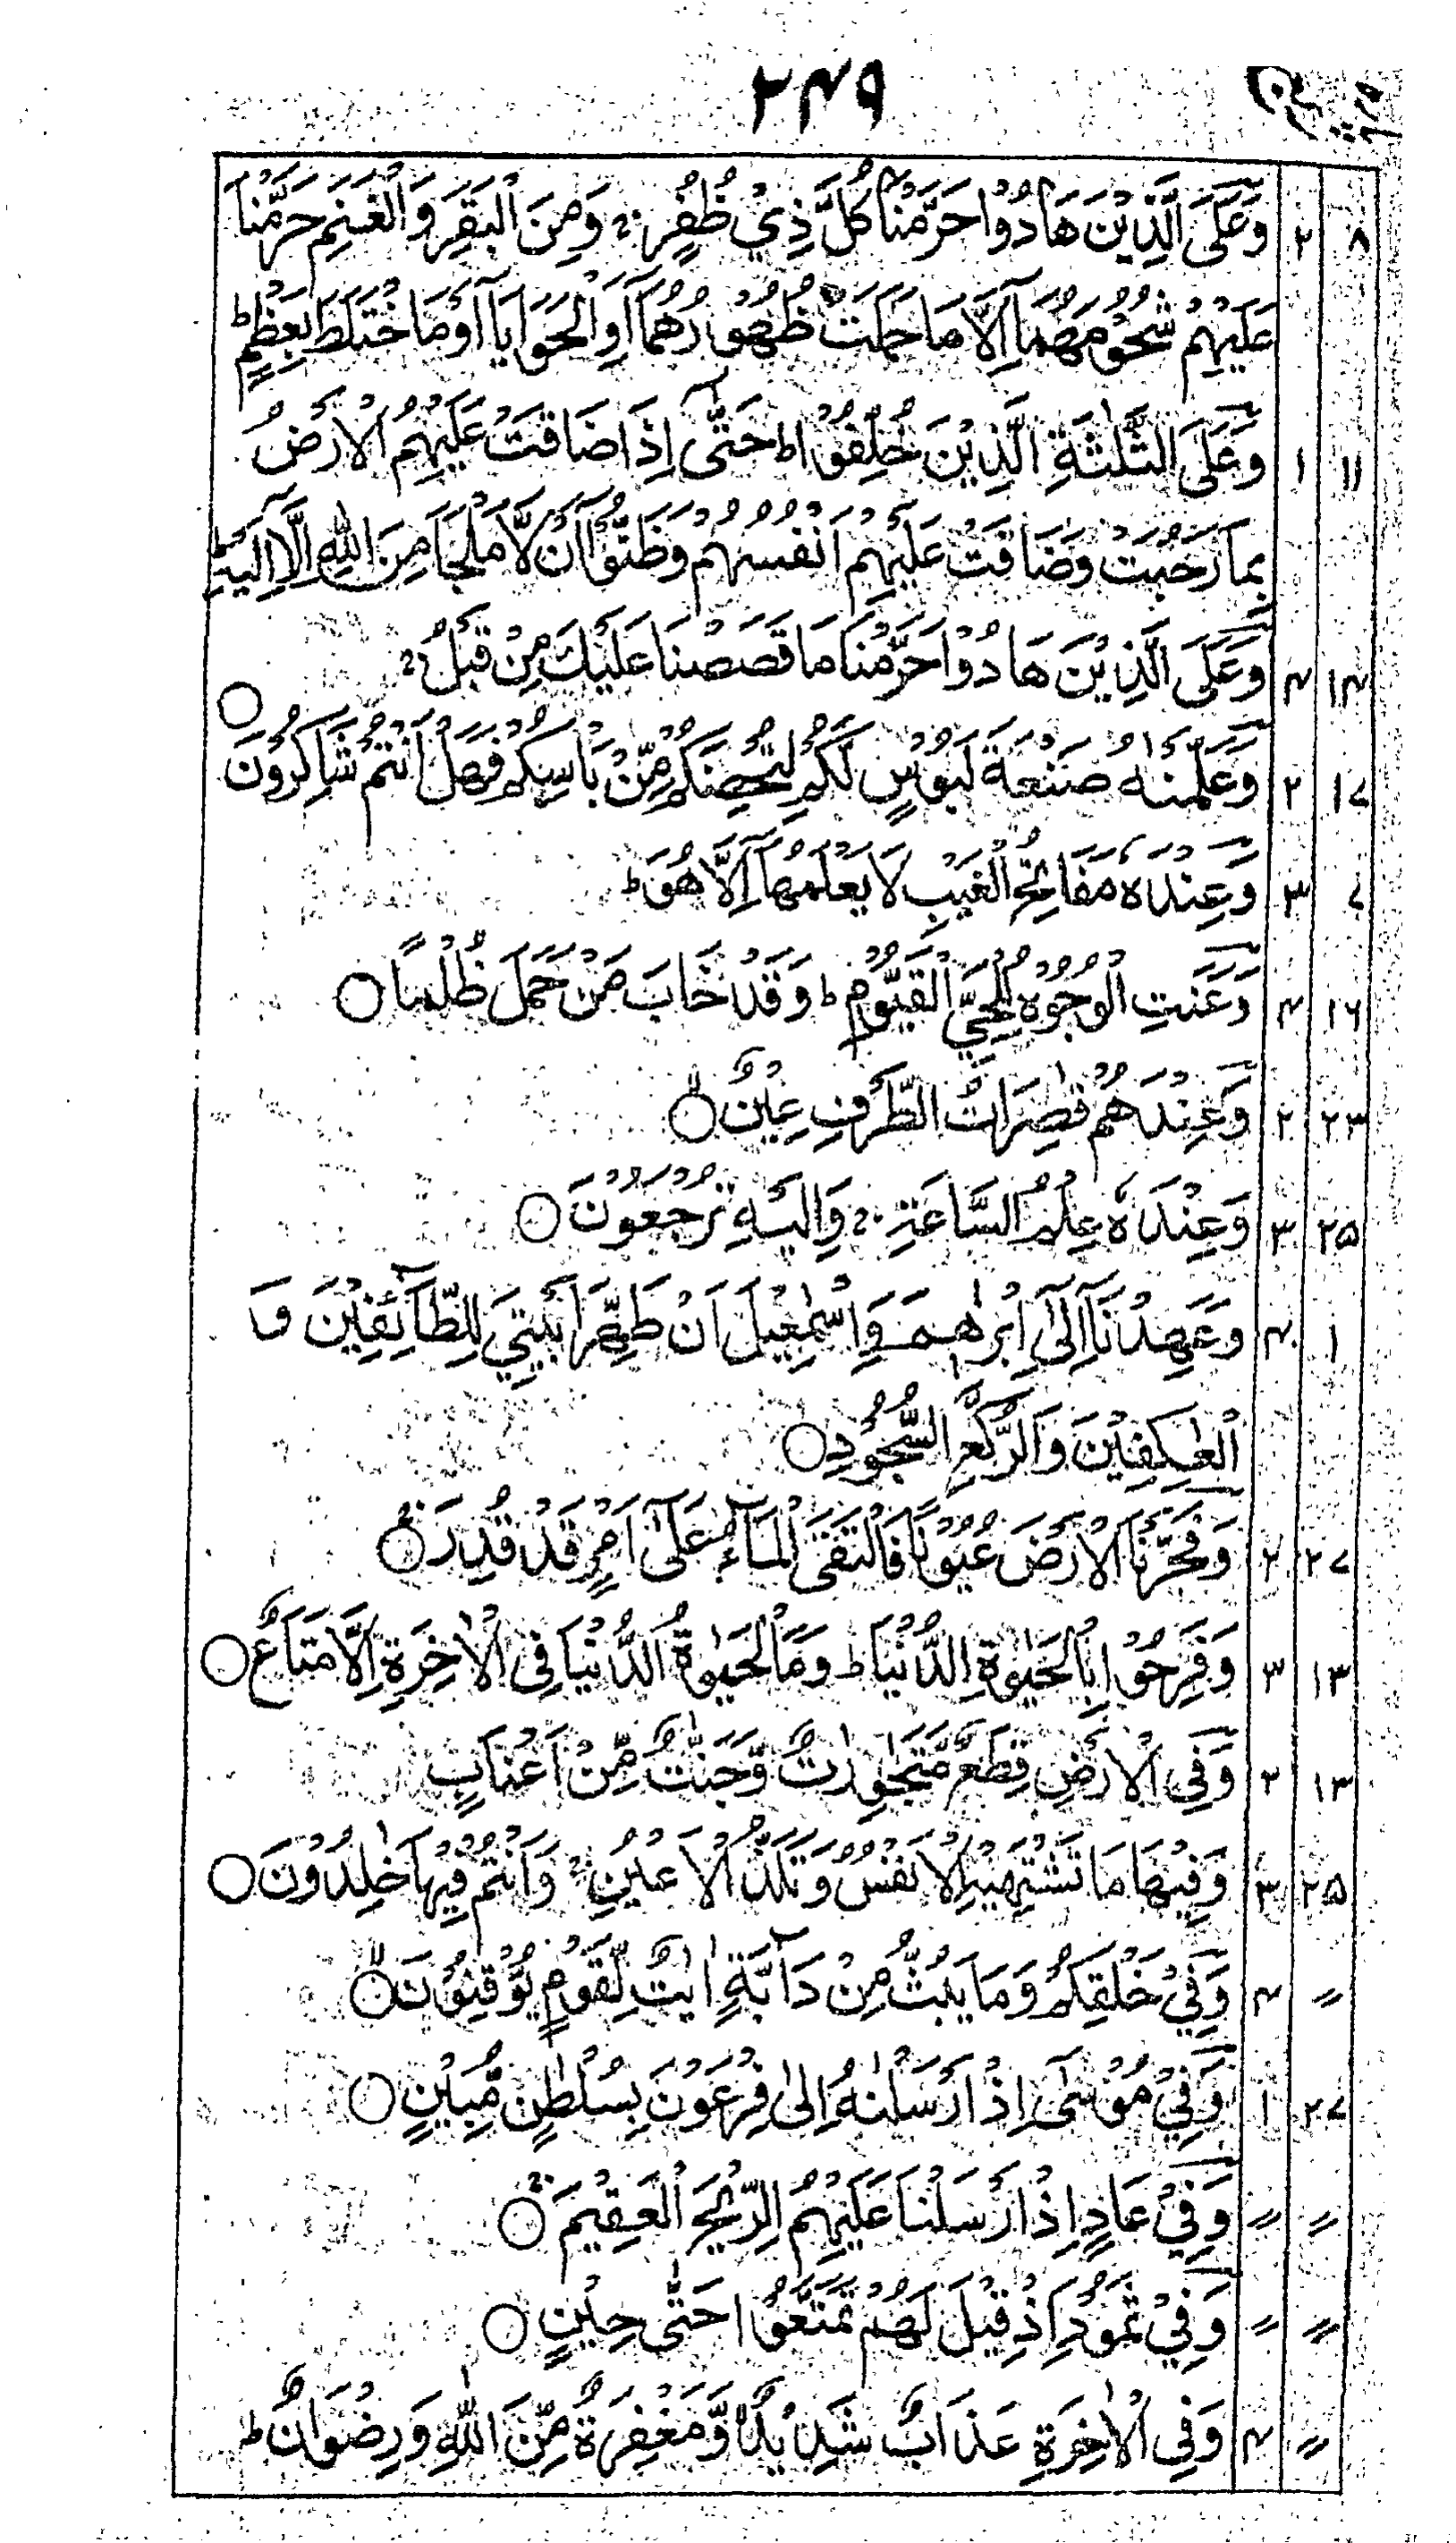 ۲۴۹
۸ ۲ وَعَلَى الَّذِيْنَ هَادُوْا حَرَّمْنَا كُلَّ ذِيْ ظُفُرٍ ۚ وَمِنَ الْبَقَرِ وَالْغَنَمِ حَرَّمْنَا
عَلَيْهِمْ شُحُوْمَهُمَآ اِلَّا مَا حَمَلَتْ ظُهُوْرُهُمَآ اَوِ الْحَوَايَآ اَوْ مَا اخْتَلَطَ بِعَظْمٍ ؕ
۱۱ ۱ وَعَلَى الثَّلٰثَةِ الَّذِيْنَ خُلِّفُوْا ؕ حَتّٰۤى اِذَا ضَاقَتْ عَلَيْهِمُ الْاَرْضُ
بِمَا رَحُبَتْ وَضَاقَتْ عَلَيْهِمْ اَنْفُسُهُمْ وَظَنُّوْۤا اَنْ لَّا مَلْجَاَ مِنَ اللّٰهِ اِلَّاۤ اِلَيْهِ ؕ
۱۴ ۴ وَعَلَى الَّذِيْنَ هَادُوْا حَرَّمْنَا مَا قَصَصْنَا عَلَيْكَ مِنْ قَبْلُ ۚ
۱۷ ۲ وَعَلَّمْنٰهُ صَنْعَةَ لَبُوْسٍ لَّكُمْ لِتُحْصِنَكُمْ مِّنْۢ بَاْسِكُمْ ۚ فَهَلْ اَنْتُمْ شٰكِرُوْنَ ○
۷ ۳ وَعِنْدَهٗ مَفَاتِحُ الْغَيْبِ لَا يَعْلَمُهَاۤ اِلَّا هُوَ ؕ
۱۶ ۴ وَعَنَتِ الْوُجُوْهُ لِلْحَيِّ الْقَيُّوْمِ ؕ وَقَدْ خَابَ مَنْ حَمَلَ ظُلْمًا ○
۲۳ ۲ وَعِنْدَهُمْ قٰصِرٰتُ الطَّرْفِ عِيْنٌ ۙ○
۲۵ ۳ وَعِنْدَهٗ عِلْمُ السَّاعَةِ ۚ وَاِلَيْهِ تُرْجَعُوْنَ ○
۱ ۴ وَعَهِدْنَاۤ اِلٰۤى اِبْرٰهٖمَ وَاِسْمٰعِيْلَ اَنْ طَهِّرَا بَيْتِيَ لِلطَّآئِفِيْنَ وَ
الْعٰكِفِيْنَ وَالرُّكَّعِ السُّجُوْدِ ○
۲۷ ۲ وَفَجَّرْنَا الْاَرْضَ عُيُوْنًا فَالْتَقَى الْمَآءُ عَلٰۤى اَمْرٍ قَدْ قُدِرَ ۚ○
۱۳ ۳ وَفَرِحُوْا بِالْحَيٰوةِ الدُّنْيَا ؕ وَمَا الْحَيٰوةُ الدُّنْيَا فِي الْاٰخِرَةِ اِلَّا مَتَاعٌ ○
۱۳ ۲ وَفِي الْاَرْضِ قِطَعٌ مُّتَجٰوِرٰتٌ وَّجَنّٰتٌ مِّنْ اَعْنَابٍ
۲۵ ۳ وَفِيْهَا مَا تَشْتَهِيْهِ الْاَنْفُسُ وَتَلَذُّ الْاَعْيُنُ ۚ وَاَنْتُمْ فِيْهَا خٰلِدُوْنَ ○
〃 ۴ وَفِيْ خَلْقِكُمْ وَمَا يَبُثُّ مِنْ دَآبَّةٍ اٰيٰتٌ لِّقَوْمٍ يُّوْقِنُوْنَ ۙ○
۲۷ ۱ وَفِيْ مُوْسٰۤى اِذْ اَرْسَلْنٰهُ اِلٰى فِرْعَوْنَ بِسُلْطٰنٍ مُّبِيْنٍ ○
〃 〃 وَفِيْ عَادٍ اِذْ اَرْسَلْنَا عَلَيْهِمُ الرِّيْحَ الْعَقِيْمَ ۚ○
〃 〃 وَفِيْ ثَمُوْدَ اِذْ قِيْلَ لَهُمْ تَمَتَّعُوْا حَتّٰى حِيْنٍ ○
〃 ۴ وَفِي الْاٰخِرَةِ عَذَابٌ شَدِيْدٌ ۙ وَّمَغْفِرَةٌ مِّنَ اللّٰهِ وَرِضْوَانٌ ؕ